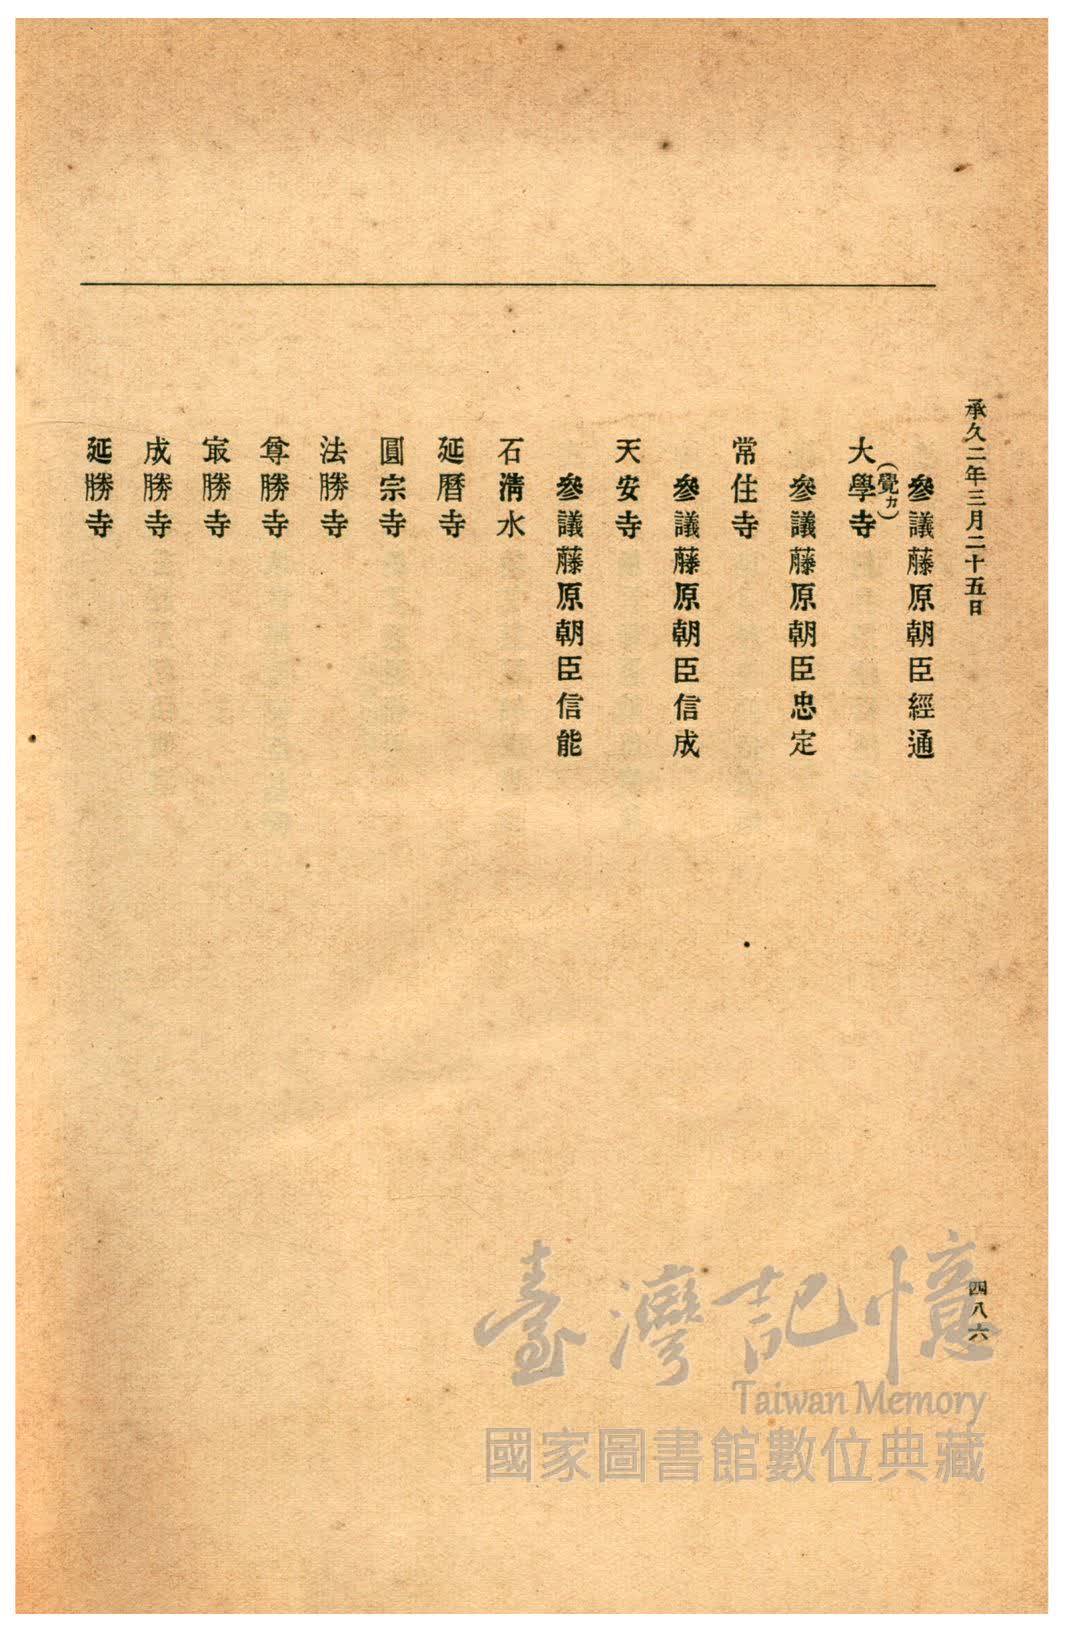 承久二年三月二十五日
參議藤原朝臣經通
大學寺
(覺カ)
參議藤原朝臣忠定
常住寺
參議藤原朝臣信成
天安寺
參議藤原朝臣信能
石淸水
延曆寺
圓宗寺
法勝寺
尊勝寺
㝡勝寺
成勝寺
延勝寺
四八六
臺灣記憶
Taiwan Memory
國家圖書館數位典藏